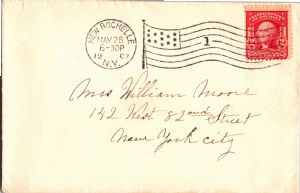 NEW ROCHELLE
MAY 28
6-30P
1907
N.Y.
1
Mrs William Moore
142 West 82nd Street
New York City